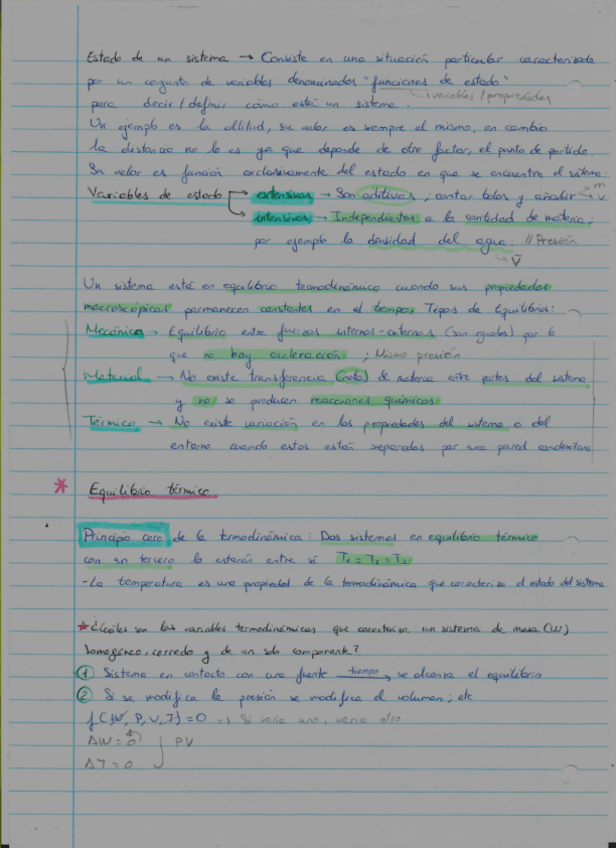 Estado de un sistema → Consiste en una situación particular caracterizada
por un conjunto de variables denominados "funciones de estado"
→ variables / propiedades
para decir / definir cómo está un sistema.
Un ejemplo es la altitud, su valor es siempre el mismo, en cambio
la distancia no lo es ya que depende de otro factor, el punto de partida.
Su valor es función exclusivamente del estado en que se encuentre el sistema.
Variables de estado → extensivas → Son aditivas, contar bolas y añadir → m
V
→ intensivas → Independientes a la cantidad de materia;
por ejemplo la densidad del agua. // Presión
Un sistema está en equilibrio termodinámico cuando sus propiedades
macroscópicas permanecen constantes en el tiempo. Tipos de Equilibrios:
Mecánico → Equilibrio entre fuerzas internas-externas (son iguales) por
que no hay aceleración ; Misma presión
Material → No existe transferencia (neta) de materia entre partes del sistema
y no se producen reacciones químicas.
Térmico → No existe variación en las propiedades del sistema o del
entorno cuando estos están separados por una pared conductora
* Equilibrio térmico
Principio cero de la termodinámica: Dos sistemas en equilibrio térmico
con un tercero lo estarán entre sí
- La temperatura es una propiedad de la termodinámica que caracteriza el estado del sistema
* ¿Cuáles son las variables termodinámicas que caracteriza un sistema de masa (W)
homogéneo, cerrado y de un solo componente?
① Sistema en contacto con una fuente tiempo → se alcanza el equilibrio
② Si se modifica la presión se modifica el volumen; etc
f (W, P, V, T) = 0 => Si varia uno, varia otro
ΔW = 0 } PV
ΔT = 0